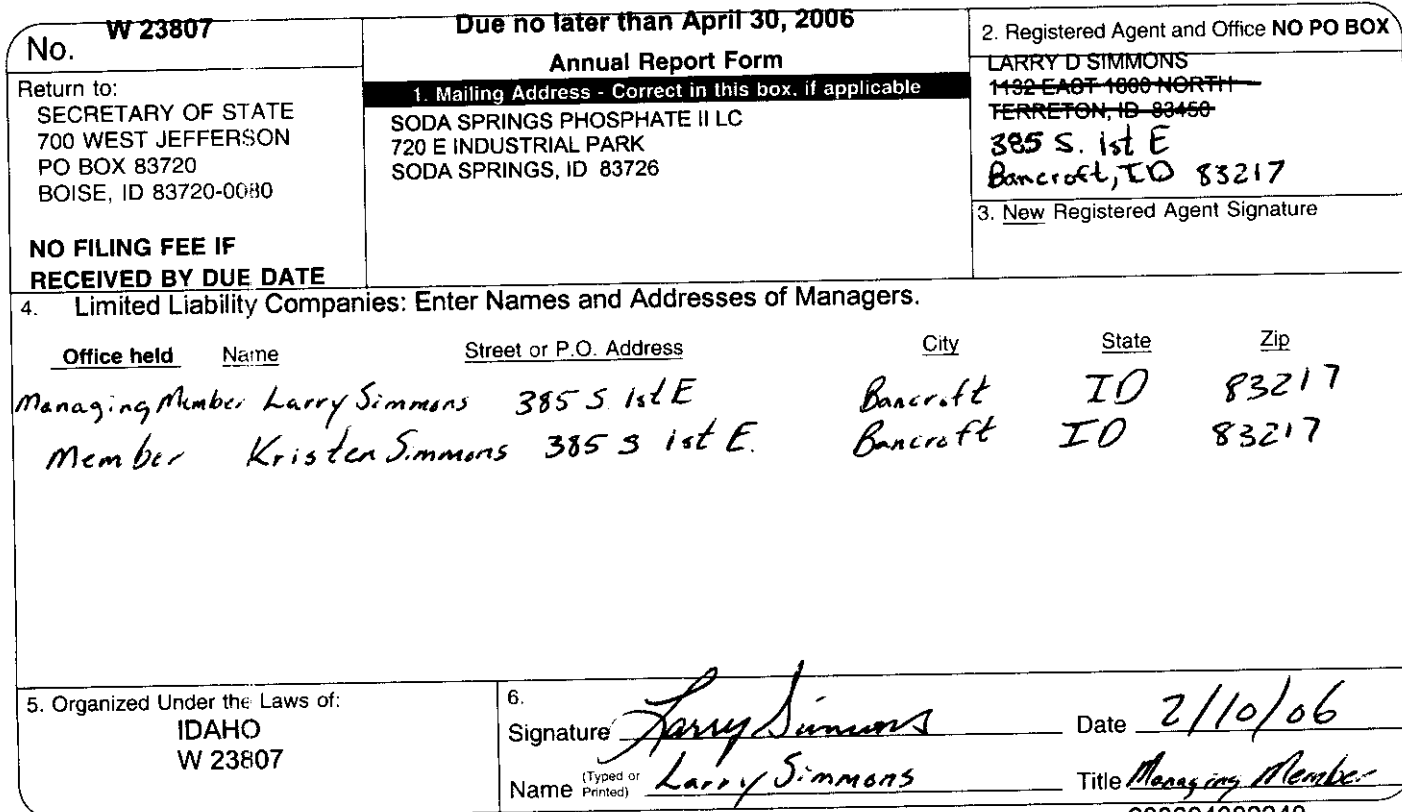 No. W 23807
Return to:
SECRETARY OF STATE
700 WEST JEFFERSON
PO BOX 83720
BOISE, ID 83720-0080
NO FILING FEE IF
RECEIVED BY DUE DATE
Due no later than April 30, 2006
Annual Report Form
1. Mailing Address - Correct in this box, if applicable
SODA SPRINGS PHOSPHATE II LC
720 E INDUSTRIAL PARK
SODA SPRINGS, ID 83726
2. Registered Agent and Office NO PO BOX
LARRY D SIMMONS
1132 EAST 1600 NORTH
TERRETON, ID 83450
385 S. 1st E
Bancroft, ID 83217
3. New Registered Agent Signature
4. Limited Liability Companies: Enter Names and Addresses of Managers.
Office held Name Street or P.O. Address City State Zip
Managing Member Larry Simmons 385 S 1st E Bancroft ID 83217
Member Kristen Simmons 385 S 1st E. Bancroft ID 83217
5. Organized Under the Laws of:
IDAHO
W 23807
6.
Signature Larry Simmons Date 2/10/06
Name (Typed or Printed) Larry Simmons Title Managing Member